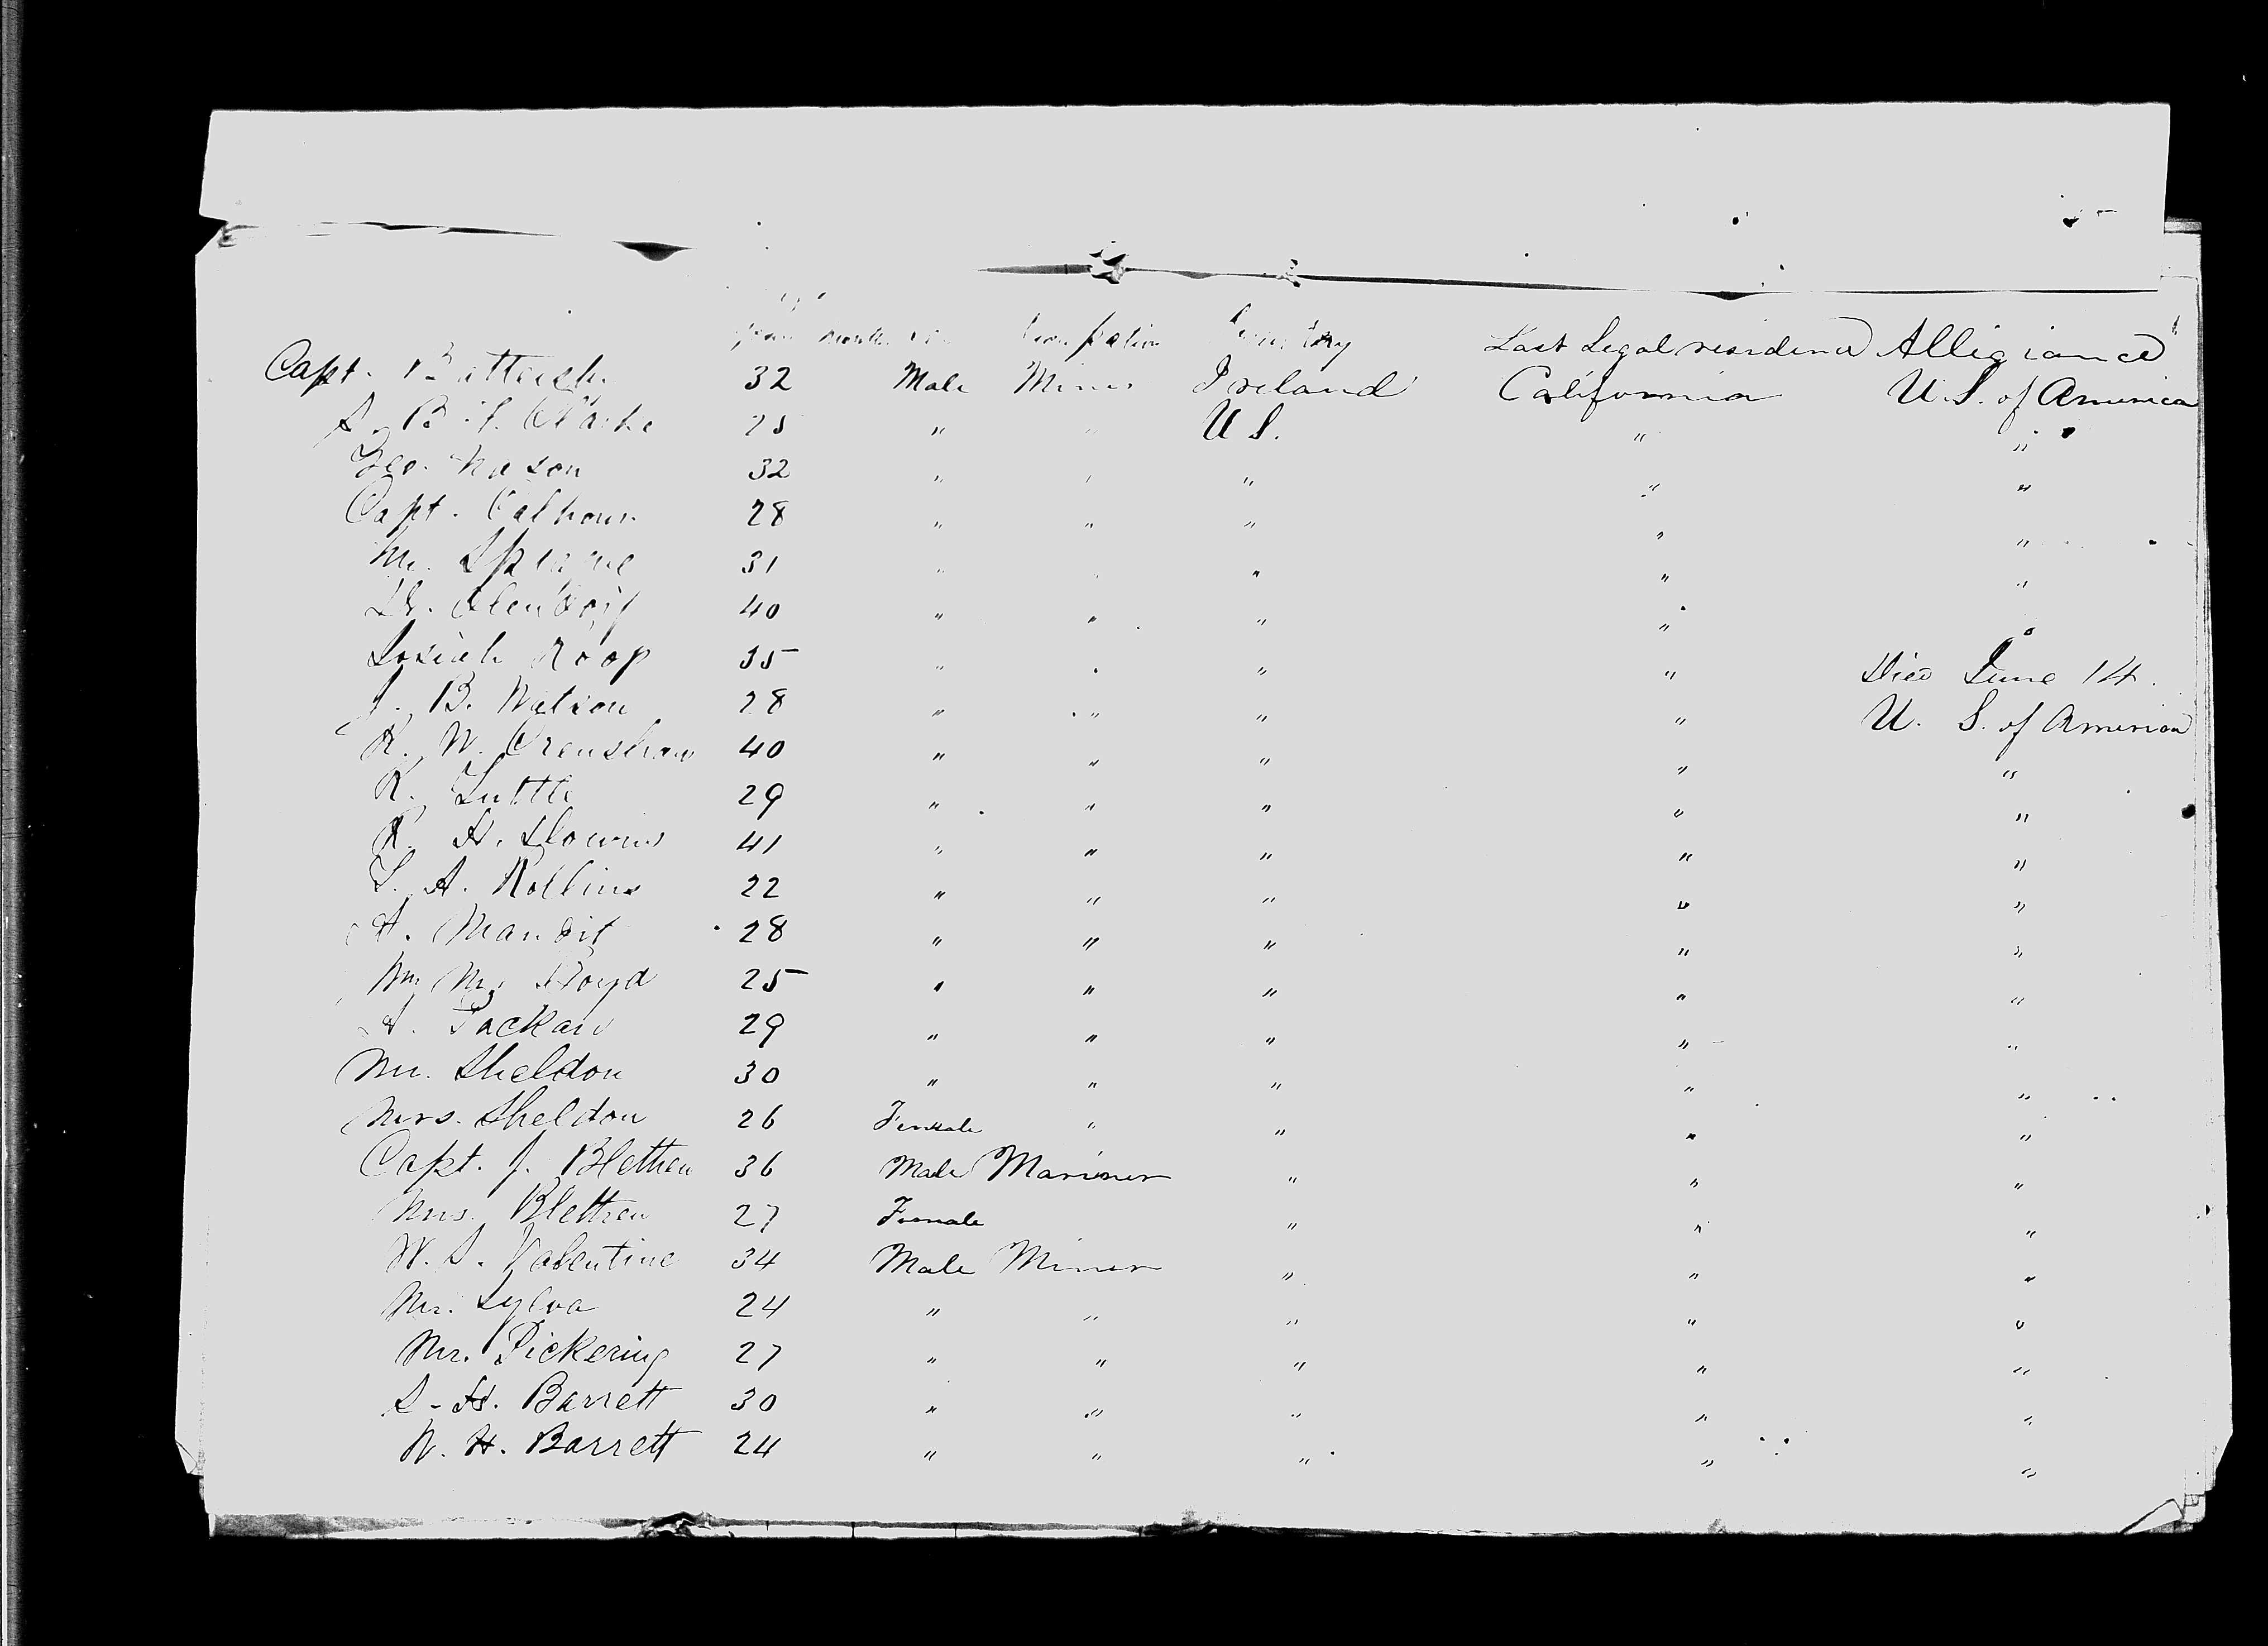 years months Occupation Country Last Legal residence Allegiance
Capt. 32 Male Miner Ireland California U.S. of America
25 " " U S. " "
Geo. Mason 32 " " " " "
Capt. Calhoun 28 " " " " "
Mr. Sprague 31 " " " " "
Dr. 40 " " " "
Josiah Roop 35 " " " " Died June 14.
J. B. Watson 28 " " " " U. S. of America
R. W. Crenshaw 40 " " " " "
R. Tuttle 29 " " " " "
R. H. Downs 41 " " " " "
L. A. Rollins 22 " " " " "
A. 28 " " " " "
Wm M. 25 " " " " "
A. Packard 29 " " " " "
Mr. Sheldon 30 " " " " "
Mrs. Sheldon 26 Female " " " "
Capt. J. Blethen 36 Male Mariner " " "
Mrs. Blethen 27 Female " " "
W. S. Valentine 34 Male Miner " " "
Mr. Sylva 24 " " " " "
Mr. Pickering 27 " " " " "
S. H. Barrett 30 " " " " "
W. H. Barrett 24 " " " " "